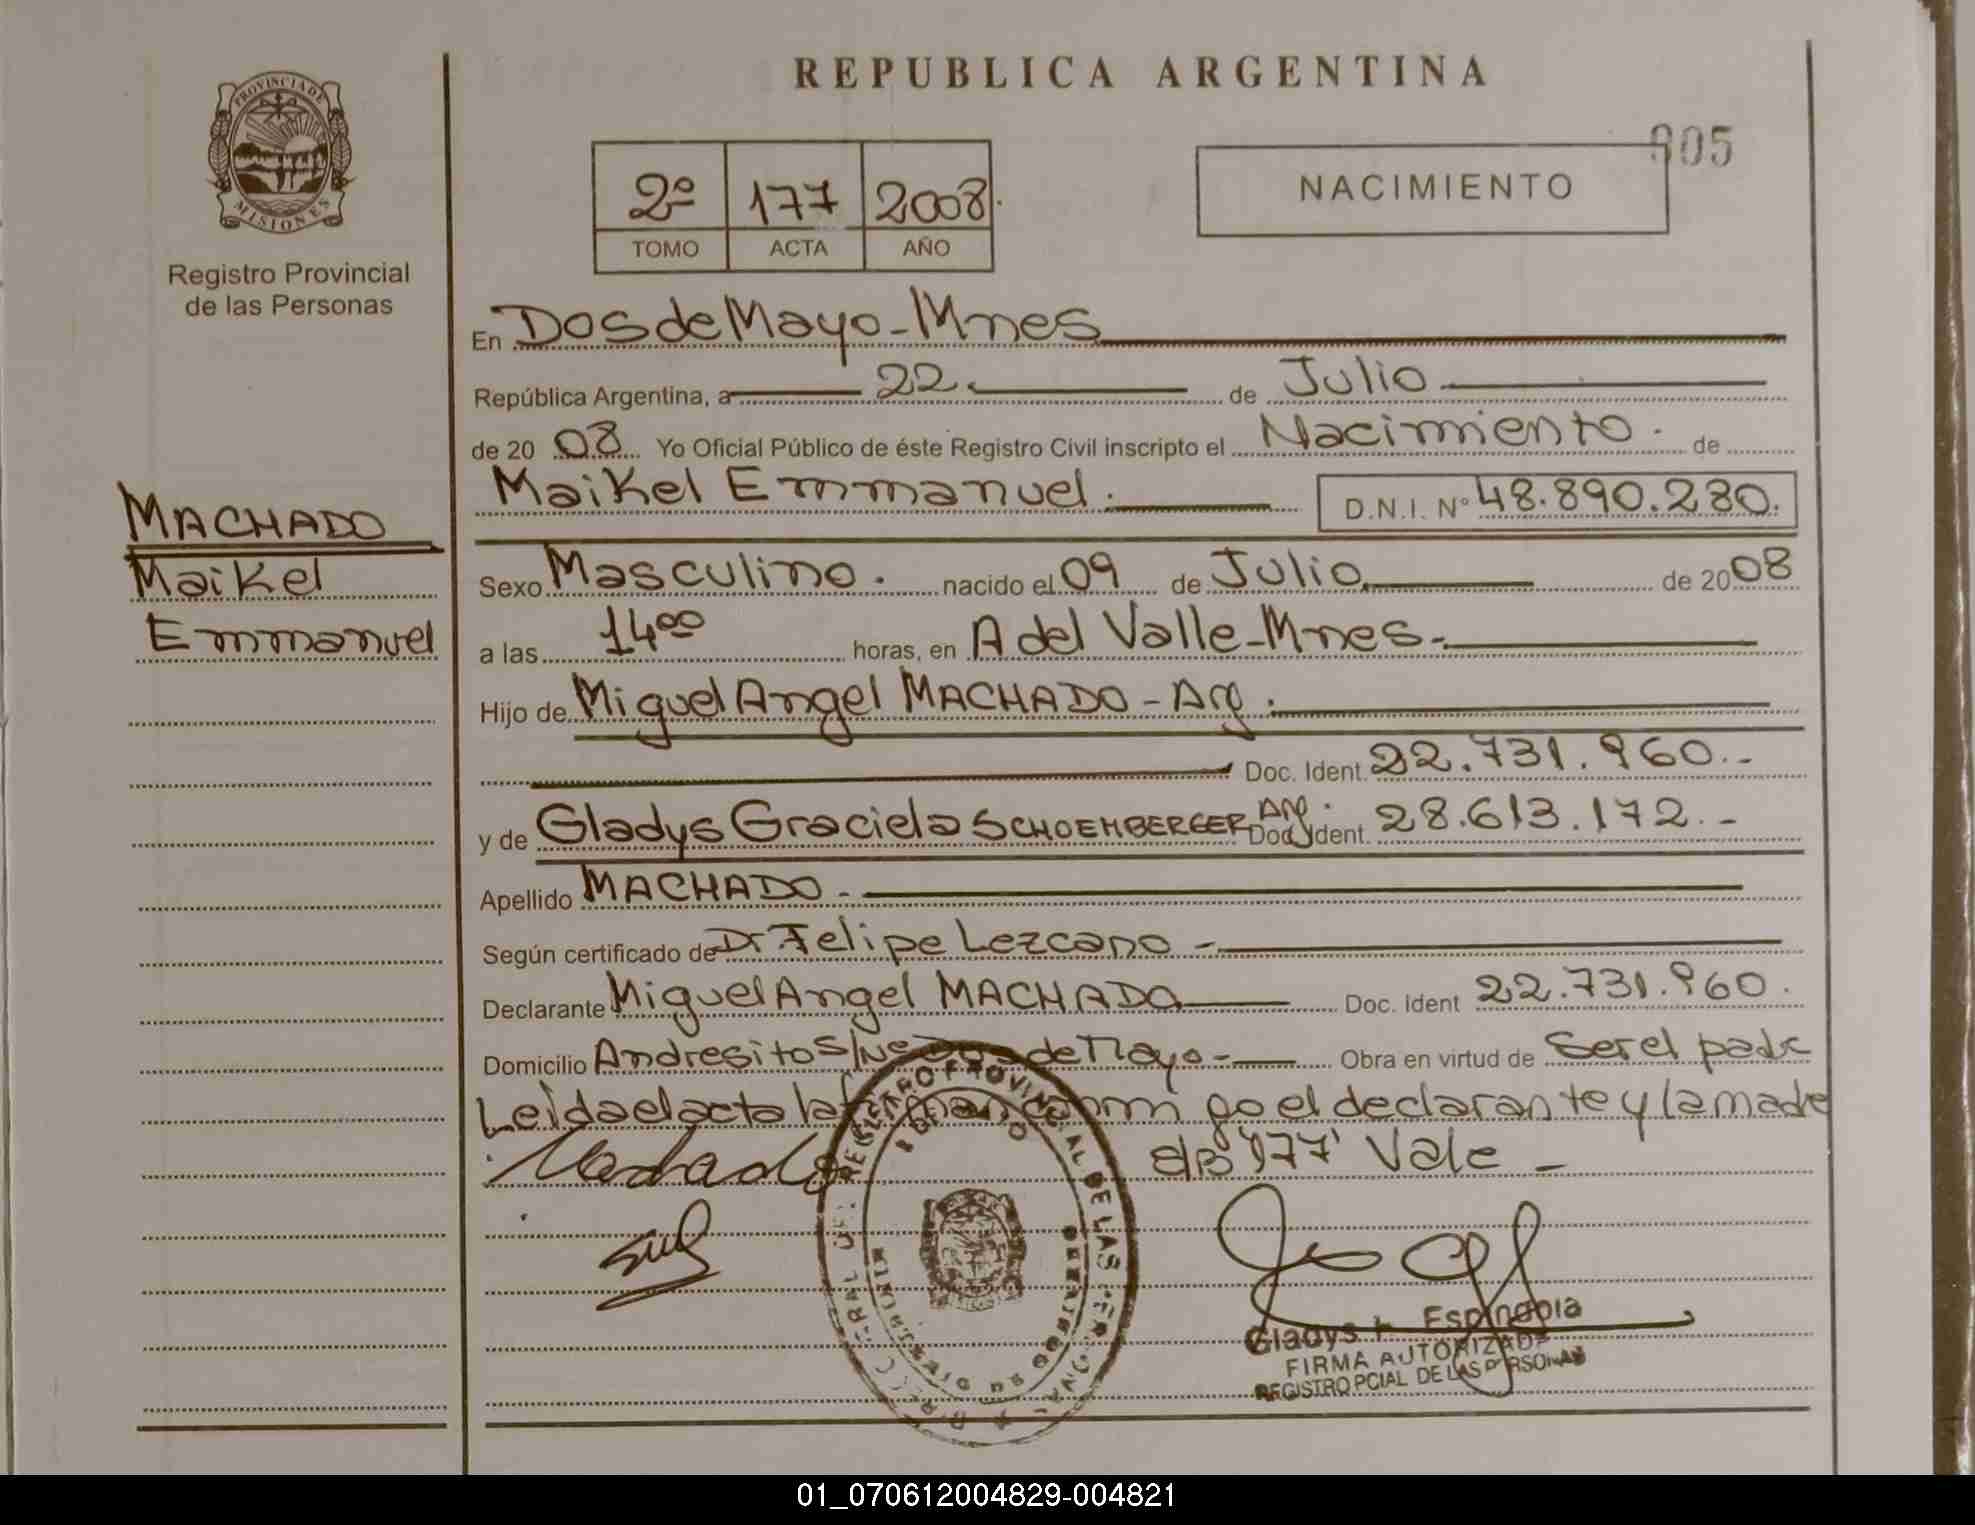 REPUBLICA ARGENTINA
PROVINCIA DE
MISIONES
Registro Provincial
de las Personas
2º 177 2008
TOMO ACTA AÑO
NACIMIENTO
005
En Dos de Mayo - Mnes
República Argentina, a 22. de Julio
de 20 08 Yo Oficial Público de éste Registro Civil inscripto el Nacimiento. de
Maikel Emmanuel. D.N.I. Nº 48.890.280.
MACHADO
Maikel
Emmanuel
Sexo Masculino. nacido el 09 de Julio de 20 08
a las 14 00 horas, en A del Valle - Mnes.
Hijo de Miguel Angel MACHADO - Arg.
Doc. Ident. 22.731.960.-
y de Gladys Graciela SCHOEMBERGER Arg. Doc. Ident. 28.613.172.-
Apellido MACHADO.
Según certificado de Dr Felipe Lezcano -
Declarante Miguel Angel MACHADO Doc. Ident 22.731.960.
Domicilio Andresito S/Nº Dos de Mayo - Obra en virtud de Ser el padre
Leida el acta la firman conmigo el declarante y la madre
Machado
177 Vale -
REGISTRO PROVINCIAL DE LAS
Gladys Espindola
FIRMA AUTORIZADA
REGISTRO PCIAL DE LAS PERSONAS
01_070612004829-004821